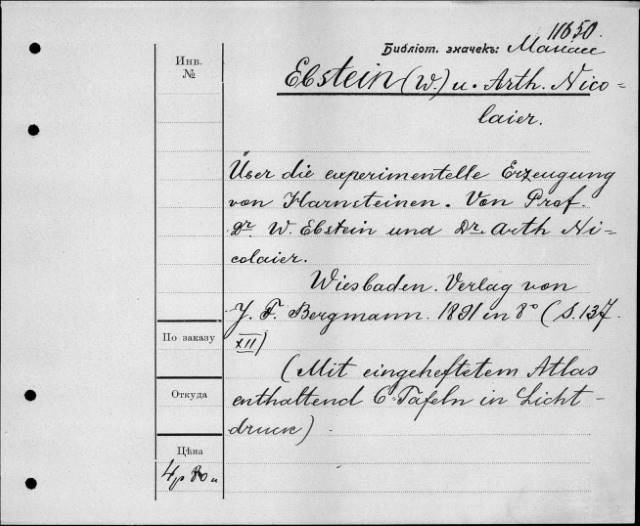 11650.
Библіот. значекъ:
Инв.
№
Ebstein (W.) u. Arth. Nico-
laier.
Über die experimentelle Erzeugung
von Harnsteinen. Von Prof.
Dr. W. Ebstein und Dr. Arth Ni-
colaier.
Wiesbaden. Verlag von
J. F. Bergmann. 1891 in 8° (S. 137.
XII)
По заказу
(Mit eingeheftetem Atlas
enthaltend 6 Tafeln in Licht-
druck)
Откуда
Цѣна